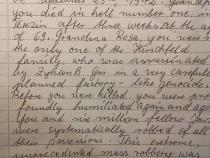 on September 23rd, 1942. Grandpa
you died in hall number one in
Terezin after three weeks at the age
of 69. Grandma Rosa, you were
the only one of the Hirschfeld
family who was assassinated
by Zyklon B gas in a very carefully
planned factory-like genocide.
Before you were killed you were pro-
foundly humiliated again and again.
You and six million fellow Jews
were systematically robbed of all
their possessions. This extreme,
unprecedented mass robbery was